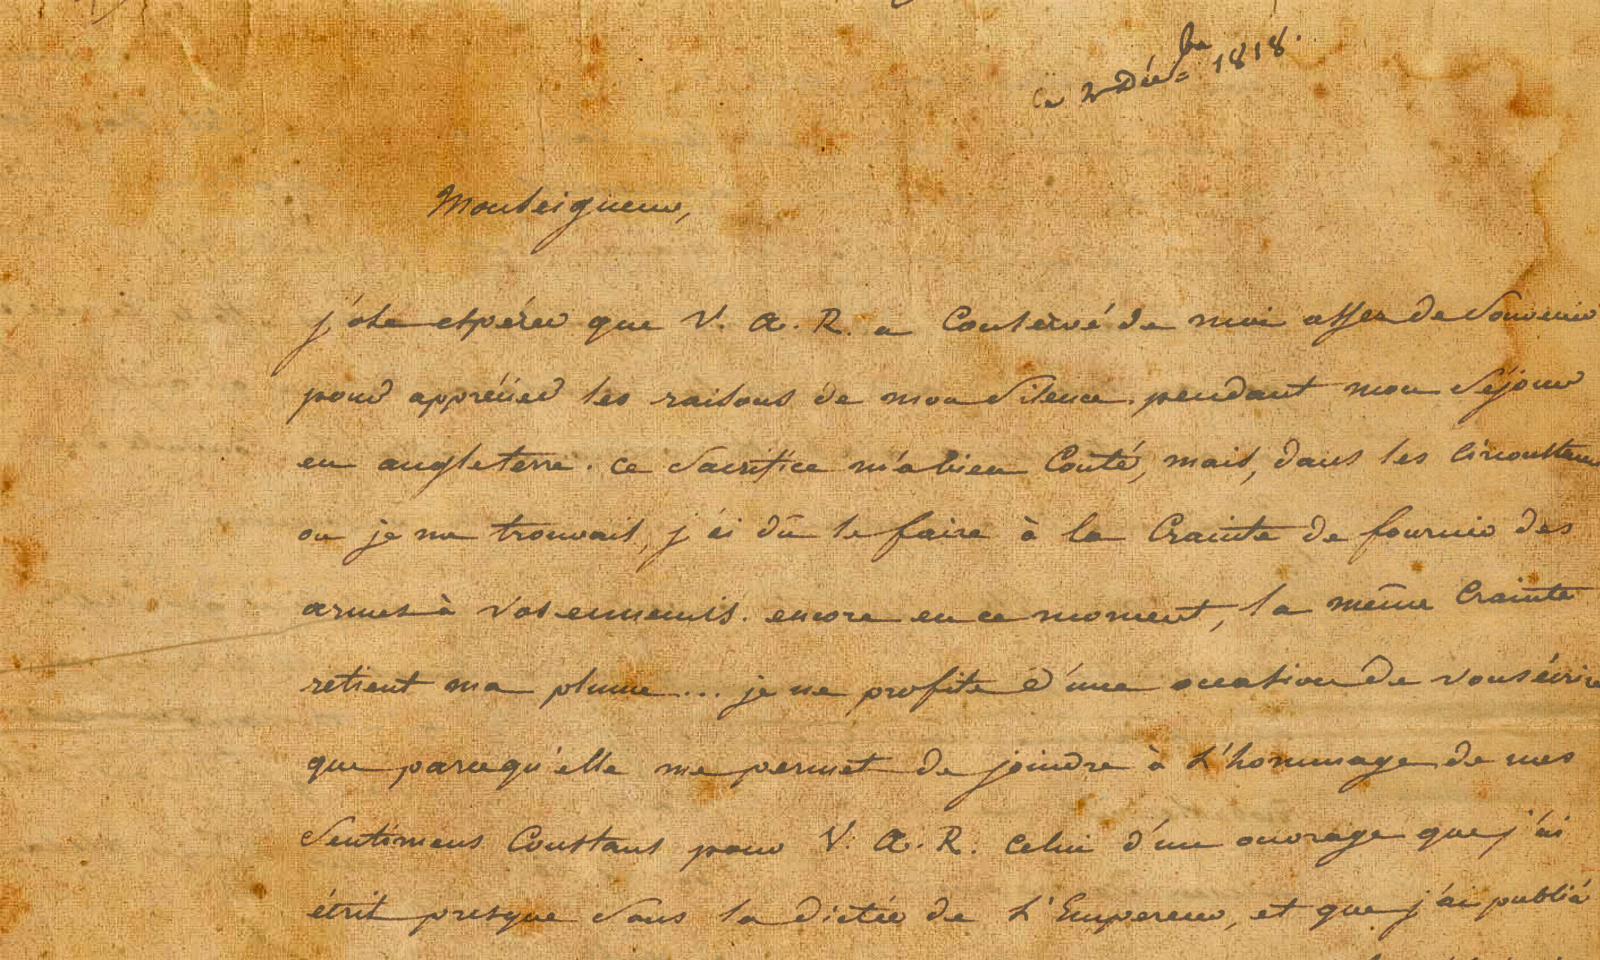 ce 2 Déc.bre 1818.
Monseigneur,
j'ose espérer que V. A. R. a Conservé de moi assez de Souvenir
pour apprécier les raisons de mon Silence pendant mon Séjour
en angleterre. ce Sacrifice m'a bien Couté, mais, dans les Circonstances
ou je me trouvais, j'ai dû le faire à la Crainte de fournir des
armes à vos ennemis. encore en ce moment, la même Crainte
retient ma plume... je ne profite d'une occasion de vous écrire
que parcequ'elle me permet de joindre à L'hommage de mes
Sentimens Constans pour V. A. R. celui d'un ouvrage que j'ai
écrit presque Sous la dictée de L'Empereur, et que j'ai publié